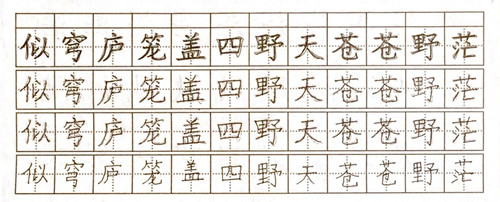 似穹庐笼盖四野天苍苍野茫
似穹庐笼盖四野天苍苍野茫
似穹庐笼盖四野天苍苍野茫
似穹庐笼盖四野天苍苍野茫